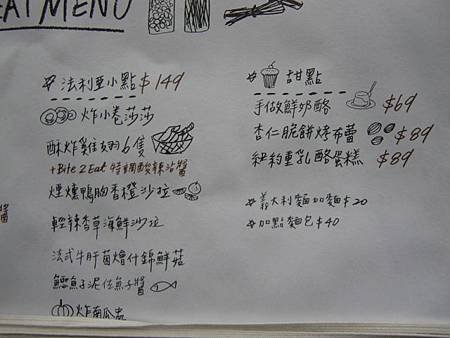 EAT MENU
法利亞小點 $149
炸小卷莎莎
酥炸雞翅6隻
+Bite 2 Eat 特調酸辣沾醬
煙燻鴨胸香橙沙拉
輕辣香草海鮮沙拉
法式牛肝菌燴什錦鮮菇
鱈魚子泥佐魚子醬
炸南瓜
醬
甜點
手做鮮奶酪 $69
杏仁脆餅烤布蕾 $89
紐約重乳酪蛋糕 $89
義大利麵加麵$20
加點麵包$40